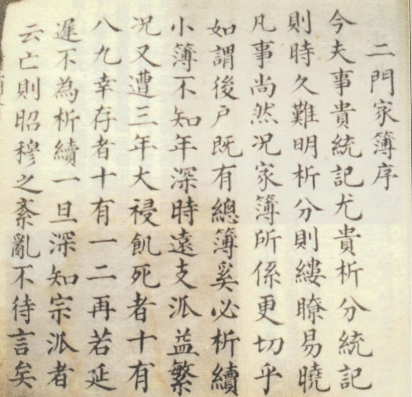 二門家簿序
今夫事貴統記尤貴析分統記
則時久難明析分則縷瞭易曉
凡事尚然况家簿所係更切乎
如謂後户既有總簿奚必析續
小簿不知年深時遠支派益繁
况又遭三年大祲飢死者十有
八九幸存者十有一二再若延
遲不為析續一旦深知宗派者
云亡則昭穆之紊亂不待言矣